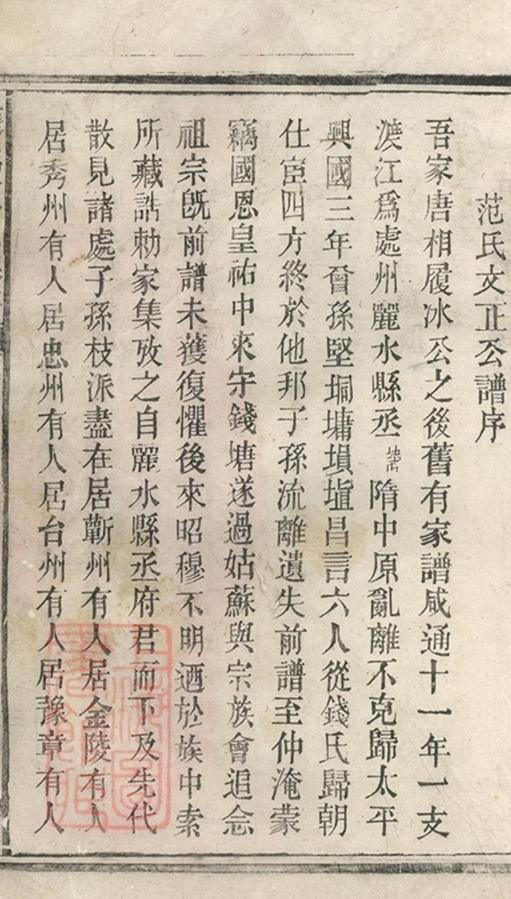 范氏文正公譜序
吾家唐相履冰公之後舊有家譜咸通十一年一支
渡江爲處州麗水縣丞 隋中原亂離不克歸太平
興國三年曾孫堅坰墉塤埴昌言六人從錢氏歸朝
仕宦四方終於他邦子孫流離遺失前譜至仲淹蒙
竊國恩皇祐中來守錢塘遂過姑蘇與宗族會追念
祖宗旣前譜未獲復懼後來昭穆不明迺於族中索
所藏誥勅家集攷之自麗水縣丞府君而下及先代
散見諸處子孫枝派盡在居蘄州有人居金陵有人
居秀州有人居忠州有人居台州有人居豫章有人